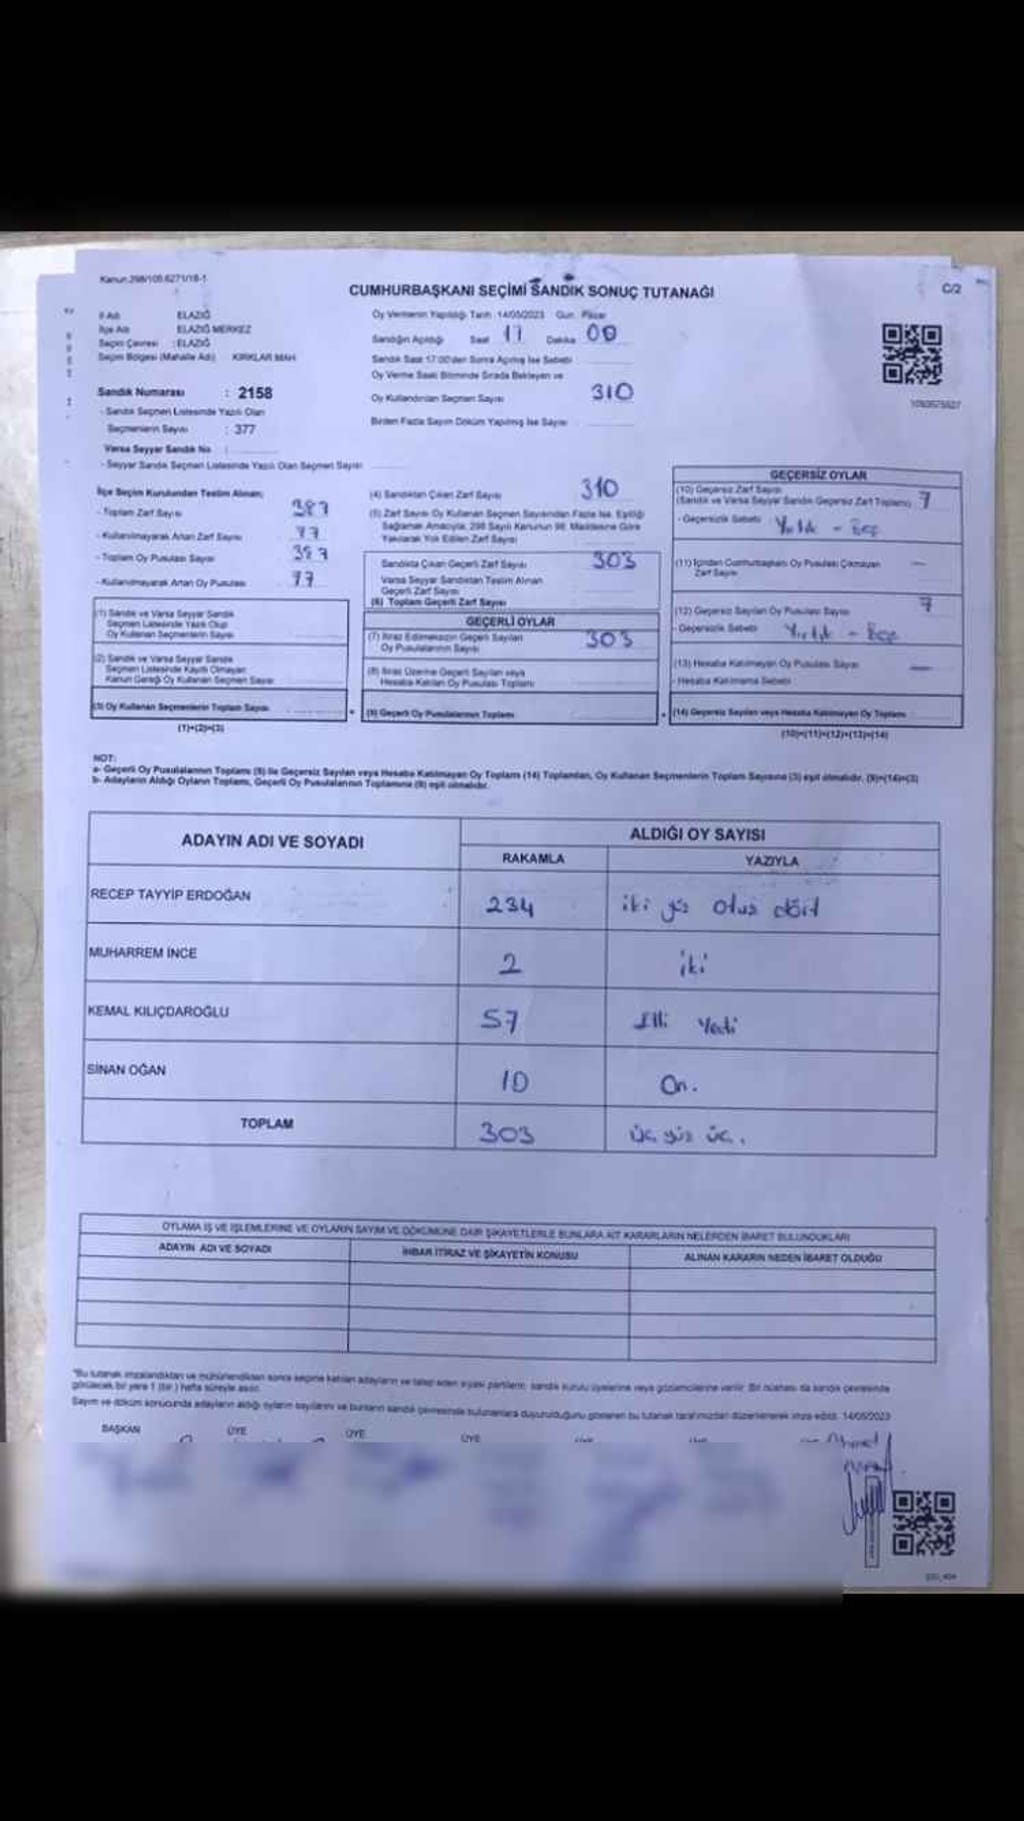 Kanun 298/105 6271/18-1
CUMHURBAŞKANI SEÇİMİ SANDIK SONUÇ TUTANAĞI
C/2
İl Adı ELAZIĞ
İlçe Adı ELAZIĞ MERKEZ
Seçim Çevresi : ELAZIĞ
Seçim Bölgesi (Mahalle Adı) KIRKLAR MAH
Sandık Numarası : 2158
- Sandık Seçmen Listesinde Yazılı Olan
Seçmenlerin Sayısı : 377
Varsa Seyyar Sandık No :
- Seyyar Sandık Seçmen Listesinde Yazılı Olan Seçmen Sayısı
Oy Vermenin Yapıldığı Tarih : 14/05/2023 Gün : Pazar
Sandığın Açıldığı Saat 17 Dakika 00
Sandık Saat 17:00'den Sonra Açılmış İse Sebebi
Oy Verme Saati Bitiminde Sırada Bekleyen ve
Oy Kullandırılan Seçmen Sayısı 310
Birden Fazla Sayım Döküm Yapılmış İse Sayısı
İlçe Seçim Kurulundan Teslim Alınan;
- Toplam Zarf Sayısı 387
- Kullanılmayarak Artan Zarf Sayısı 77
- Toplam Oy Pusulası Sayısı 387
- Kullanılmayarak Artan Oy Pusulası 77
(1) Sandık ve Varsa Seyyar Sandık
Seçmen Listesinde Yazılı Olup
Oy Kullanan Seçmenlerin Sayısı
(2) Sandık ve Varsa Seyyar Sandık
Seçmen Listesinde Kayıtlı Olmayan
Kanun Gereği Oy Kullanan Seçmen Sayısı
(3) Oy Kullanan Seçmenlerin Toplam Sayısı
(1)+(2)=(3)
(4) Sandıktan Çıkan Zarf Sayısı 310
(5) Zarf Sayısı Oy Kullanan Seçmen Sayısından Fazla İse, Eşitliği
Sağlamak Amacıyla, 298 Sayılı Kanunun 98. Maddesine Göre
Yakılarak Yok Edilen Zarf Sayısı
Sandıkta Çıkan Geçerli Zarf Sayısı 303
Varsa Seyyar Sandıktan Teslim Alınan
Geçerli Zarf Sayısı
(6) Toplam Geçerli Zarf Sayısı
GEÇERLİ OYLAR
(7) İtiraz Edilmeksizin Geçerli Sayılan
Oy Pusulalarının Sayısı 303
(8) İtiraz Üzerine Geçerli Sayılan veya
Hesaba Katılan Oy Pusulası Toplamı
(9) Geçerli Oy Pusulalarının Toplamı
GEÇERSİZ OYLAR
(10) Geçersiz Zarf Sayısı
(Sandık ve Varsa Seyyar Sandık Geçersiz Zarf Toplamı) 7
- Geçersizlik Sebebi Yırtık - Boş
(11) İçinden Cumhurbaşkanı Oy Pusulası Çıkmayan
Zarf Sayısı —
(12) Geçersiz Sayılan Oy Pusulası Sayısı 7
- Geçersizlik Sebebi Yırtık - Boş
(13) Hesaba Katılmayan Oy Pusulası Sayısı —
- Hesaba Katılmama Sebebi
(14) Geçersiz Sayılan veya Hesaba Katılmayan Oy Toplamı
(10)+(11)+(12)+(13)=(14)
NOT:
a- Geçerli Oy Pusulalarının Toplamı (9) ile Geçersiz Sayılan veya Hesaba Katılmayan Oy Toplamı (14) Toplamları, Oy Kullanan Seçmenlerin Toplam Sayısına (3) eşit olmalıdır. (9)+(14)=(3)
b- Adayların Aldığı Oyların Toplamı, Geçerli Oy Pusulalarının Toplamına (9) eşit olmalıdır.
ADAYIN ADI VE SOYADI
ALDIĞI OY SAYISI
RAKAMLA YAZIYLA
RECEP TAYYİP ERDOĞAN 234 iki yüz otuz dört
MUHARREM İNCE 2 iki
KEMAL KILIÇDAROĞLU 57 Elli Yedi
SİNAN OĞAN 10 On.
TOPLAM 303 üç yüz üç.
OYLAMA İŞ VE İŞLEMLERİNE VE OYLARIN SAYIM VE DÖKÜMÜNE DAİR ŞİKAYETLERLE BUNLARA AİT KARARLARIN NELERDEN İBARET BULUNDUKLARI
ADAYIN ADI VE SOYADI İHBAR İTİRAZ VE ŞİKAYETİN KONUSU ALINAN KARARIN NEDEN İBARET OLDUĞU
*Bu tutanak imzalandıktan ve mühürlendikten sonra seçime katılan adayların ve talep eden siyasi partilerin sandık kurulu üyelerine veya gözlemcilerine verilir. Bir nüshası da sandık çevresinde
görülecek bir yere 1 (bir) hafta süreyle asılır.
Sayım ve döküm sonucunda adayların aldığı oyların sayılarını ve bunların sandık çevresinde bulunanlara duyurulduğunu gösteren bu tutanak tarafımızdan düzenlenerek imza edildi. 14/05/2023
BAŞKAN ÜYE ÜYE ÜYE
Ahmet